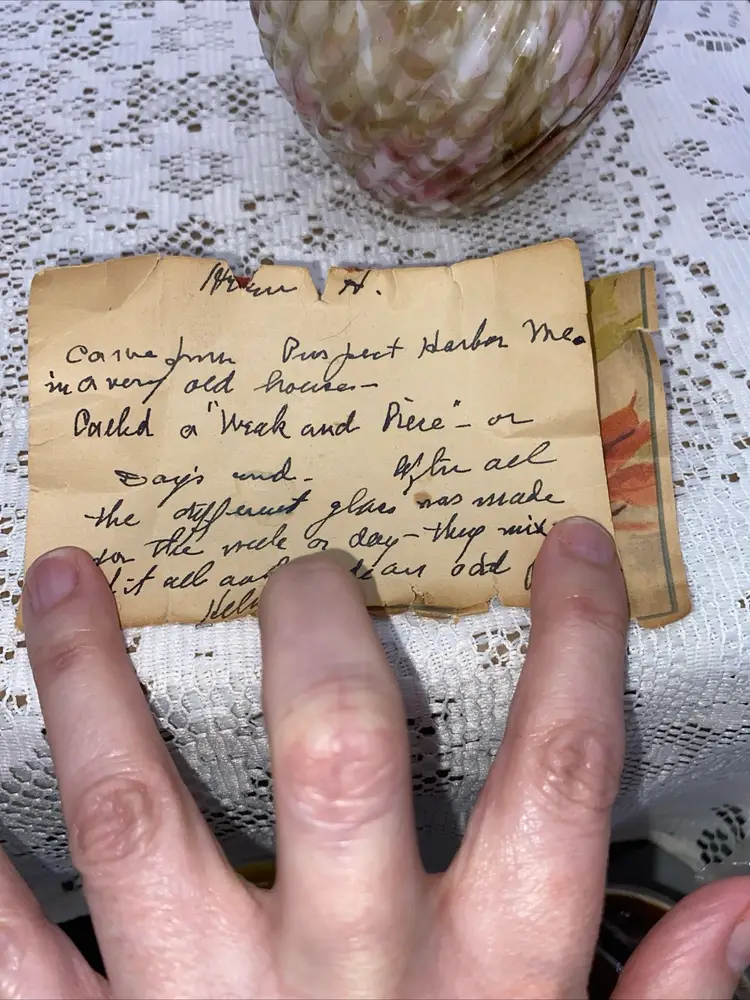 H.
Came from Prospect Harbor Me.
in a very old house—
Called a "Week end Piece" — or
Day's end — After all
the different glass was made
for the week or day — they mix
it all and an odd